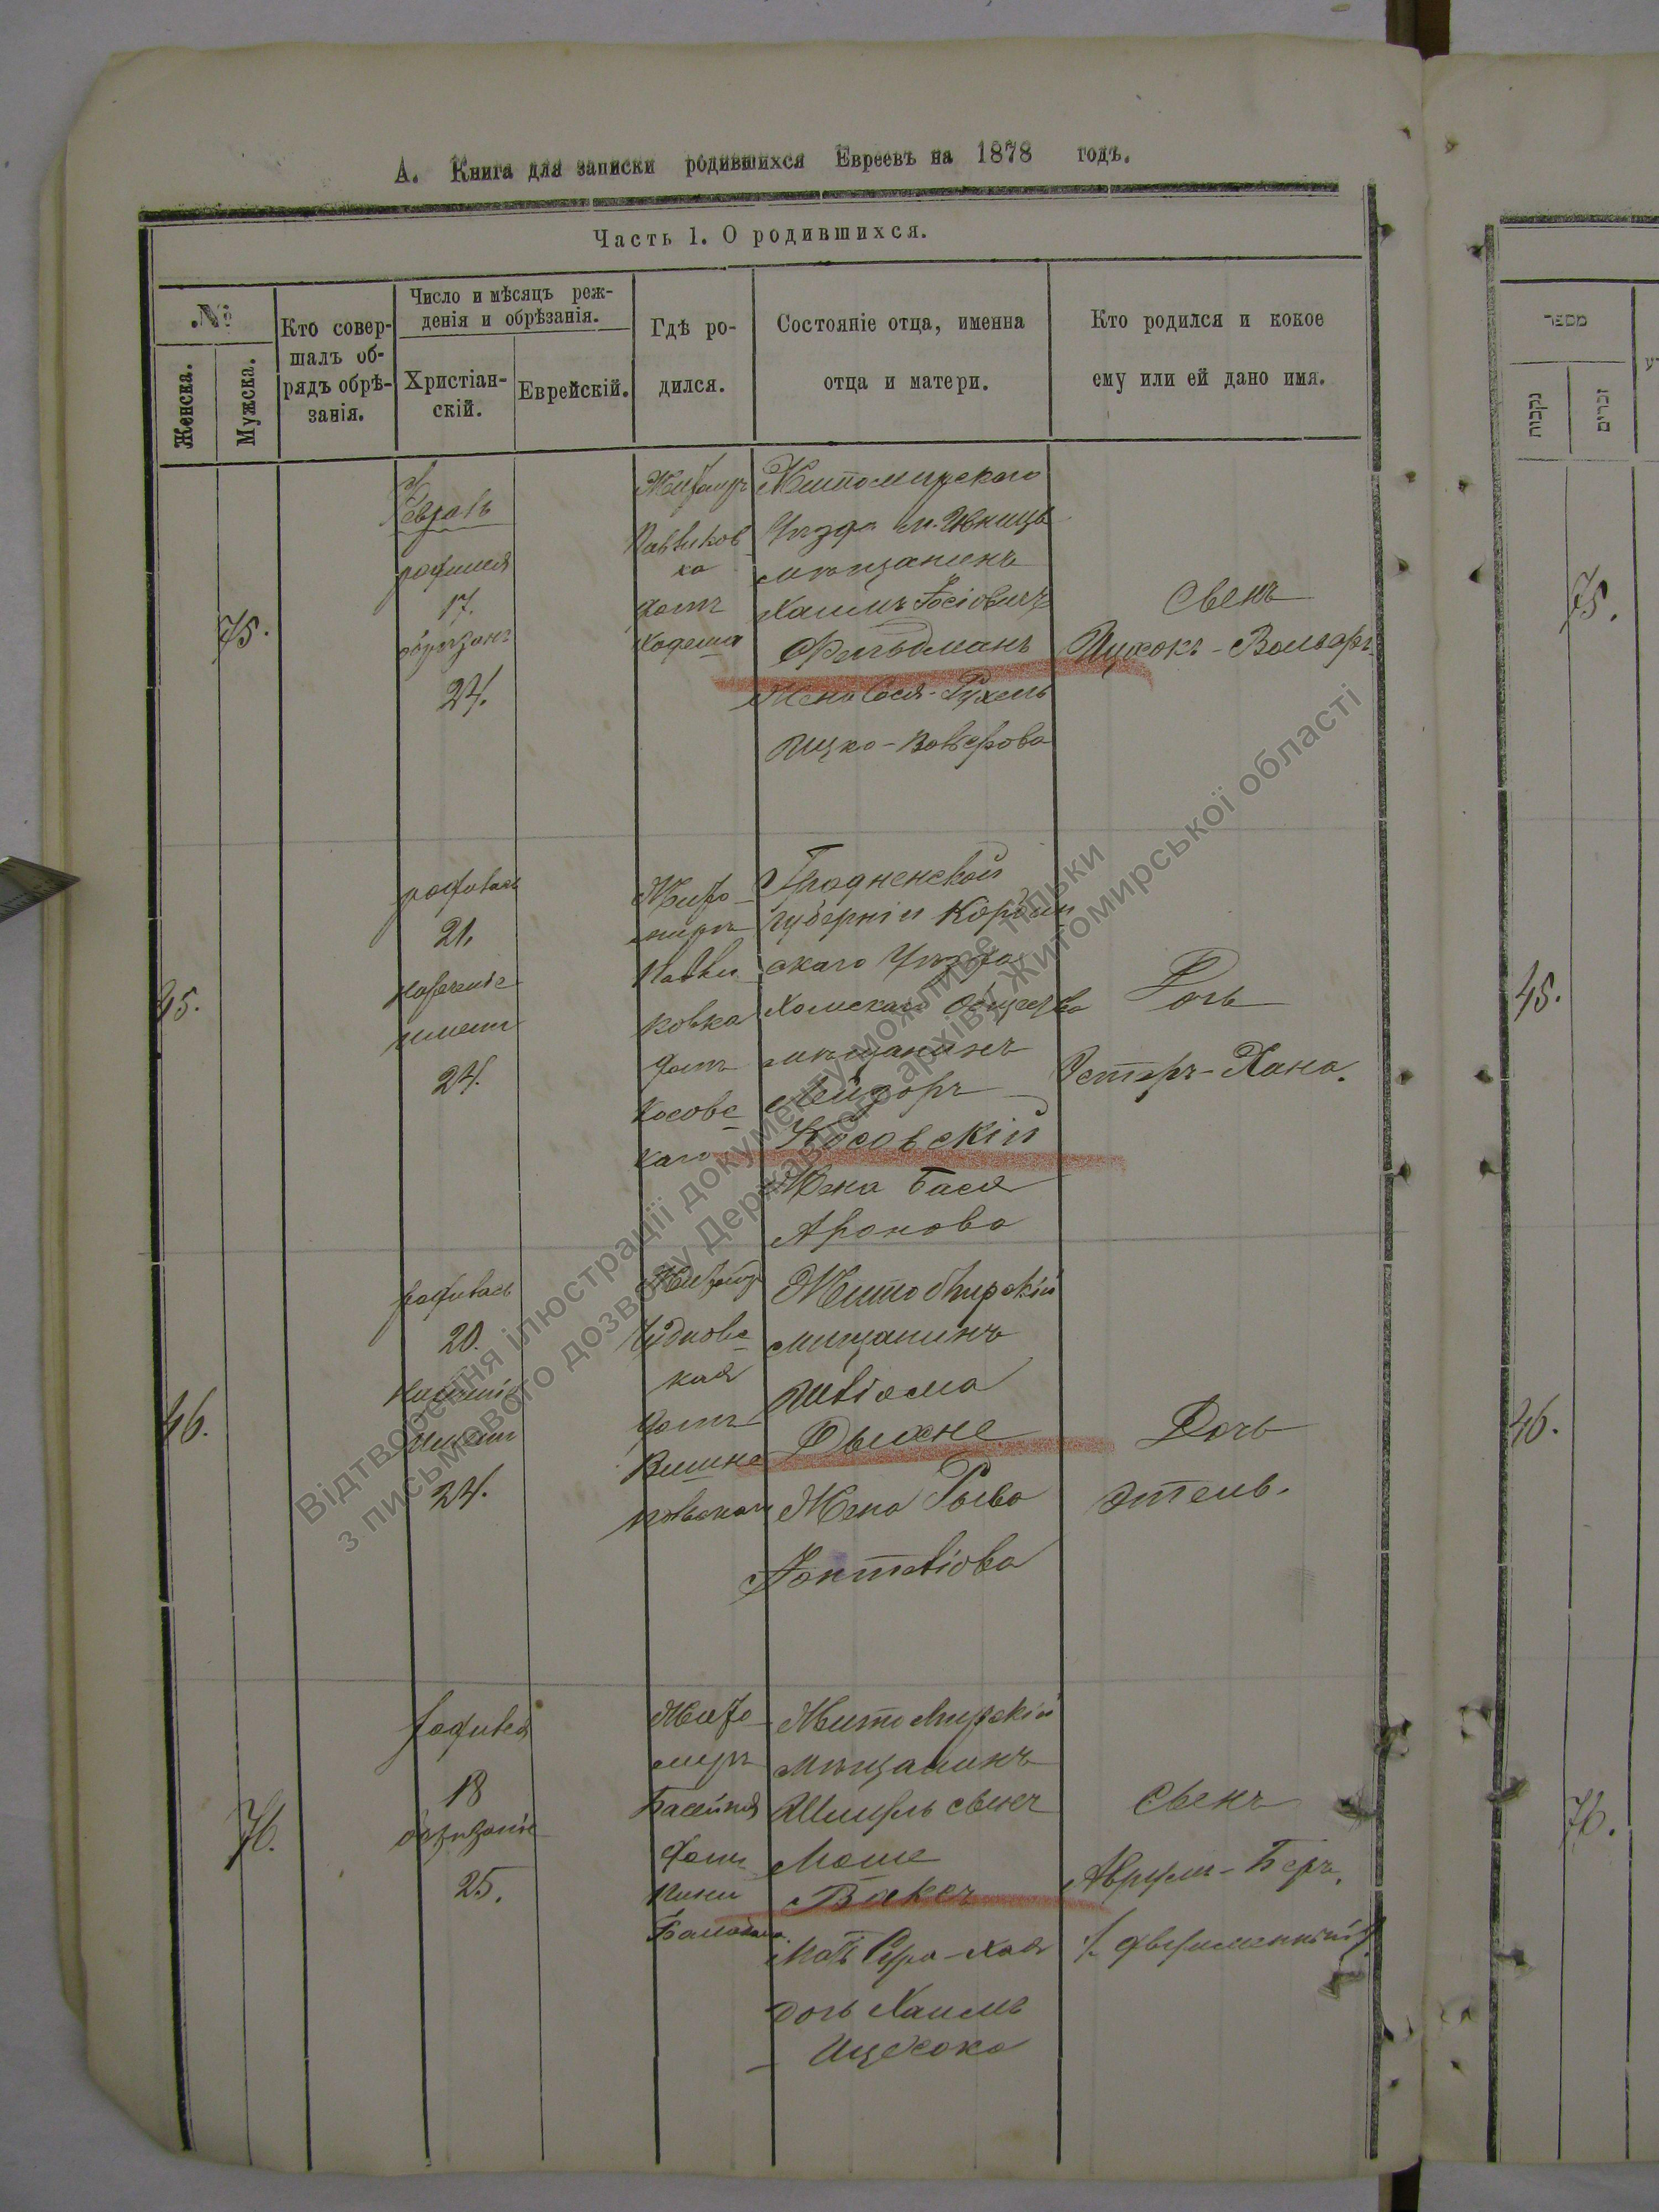 А. Книга для записки родившихся Евреевъ на 1878 годъ.
Часть 1. О родившихся.
№
Женска.
Мужска.
Кто совер-
шалъ об-
рядъ обрѣ-
занія.
Число и мѣсяцъ реж-
денія и обрѣзанія.
Христіан-
скій.
Еврейскій.
Гдѣ ро-
дился.
Состояніе отца, именна
отца и матери.
Кто родился и кокое
ему или ей дано имя.
75.
Февраль
родился
17.
обрезанъ
24.
Житомир
Павликов
ка
домъ
Житомирскаго
Уезда м. Ивницы
мещанинъ
Хаимъ Іосіовичъ
Фельдманъ
Жена Сося-Рухель
Ицко-Вольфова
Сынъ
Ицхокъ-Вольфъ
45.
родилась
21.
наречение
имени
24.
Жито-
миръ
Павли
ковка
домъ
Косовс-
каго
Гродненской
губерніи Кобрин
скаго Уезда
Хомскаго Общества
мещанинъ
Лейзоръ
Косовскій
Жена Бася
Аронова
Дочь
Эстеръ-Хана.
46.
родилась
20.
имени
24.
Житомир
Чудновс-
кая
домъ
Вишне
Житомирскій
мещанинъ
Шліома
Дыхне
Жена Рыва
Дочь
Этель.
76.
родился
18
обрезаніе
25.
Жито-
миръ
домъ
Житомирскій
мещанинъ
Шмуль сынъ
Моше
Вакс
Мать Сура-Хая
дочь Хаимъ
Ицхока
Сынъ
Аврумъ-Беръ.
75.
45.
46.
76.
מספר
נקבות
זכרים
Відтворення ілюстрації документу можливе тільки
з письмового дозволу Державного архіву Житомирської області